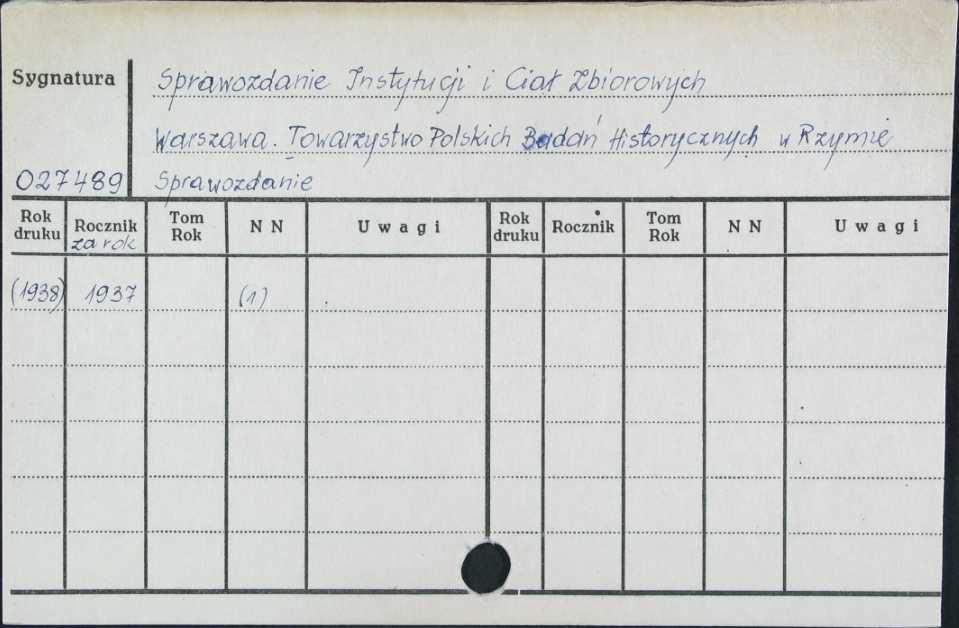 Sygnatura
Sprawozdanie Instytucji i Ciał Zbiorowych
Warszawa. Towarzystwo Polskich Badań Historycznych w Rzymie
027489 Sprawozdanie
Rok druku Rocznik za rok Tom Rok NN Uwagi Rok druku Rocznik Tom Rok NN Uwagi
(1938) 1937 (1)